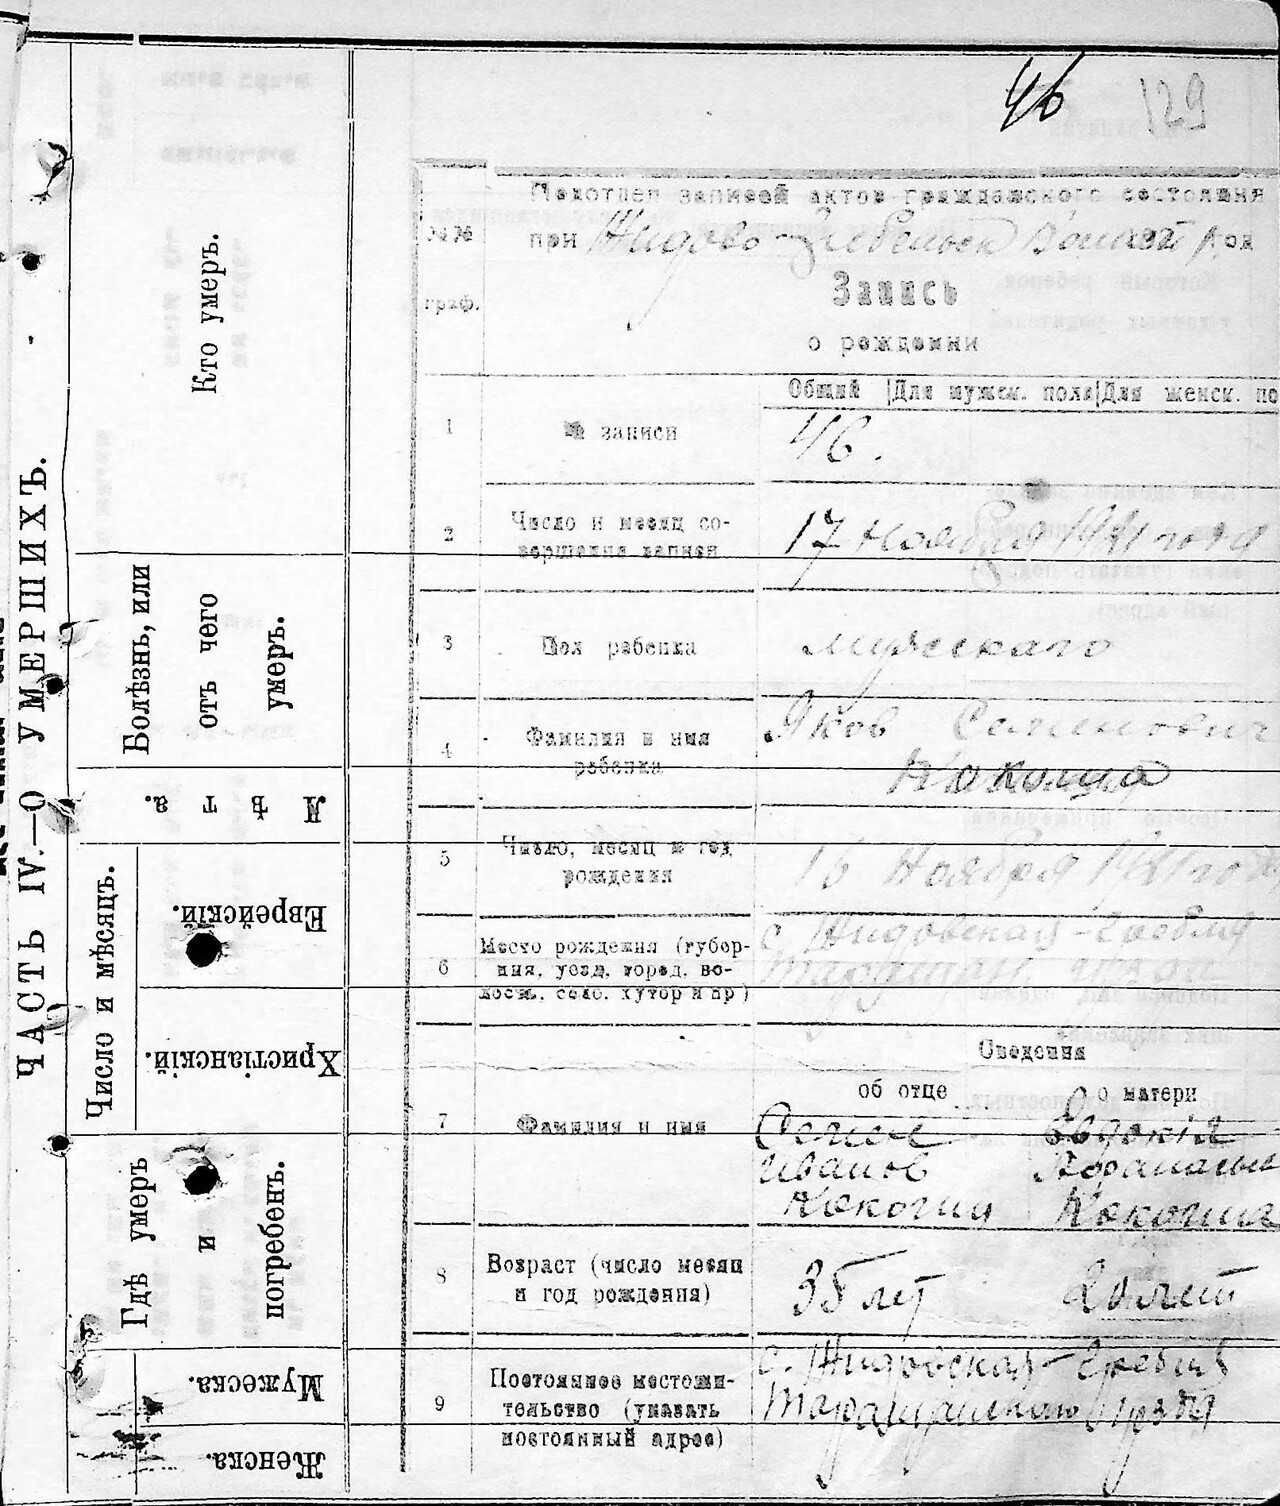 46 129
Подотдел записей актов гражданского состояния
при Жидово-Гребельск Волисп
№№
граф.
Запись
о рождении
Общий Для мужск. пола Для женск. по
1 № записи 46.
2 Число и месяц со-
вершения записи
17 Ноября 1921 года
3 Пол ребенка мужскаго
4 Фамилия и имя
ребенка
Яков Семенович
Кокоша
5 Число, месяц и год
рождения
16 Ноября 1921 года
6 Место рождения (губер-
ния, уезд, город, во-
лость, село, хутор и пр)
с. Жидовская-Гребля
Таращан. уезда
Сведения
об отце о матери
7 Фамилия и имя
Семен Евдокія
Иванов Афанасьев
Кокоша Кокоша
8 Возраст (число месяц
и год рождения)
35 лет 20 лет
9 Постоянное местожи-
тельство (указать
постоянный адрес)
с. Жидовская-Гребля
Таращанскаго уезда
ЧАСТЬ IV.—О УМЕРШИХЪ.
Кто умеръ.
Болѣзнь, или
отъ чего
умеръ.
Лѣта.
Число и мѣсяцъ.
Еврейскій.
Христіанскій.
Гдѣ умеръ
и
погребенъ.
Мужеска.
Женска.